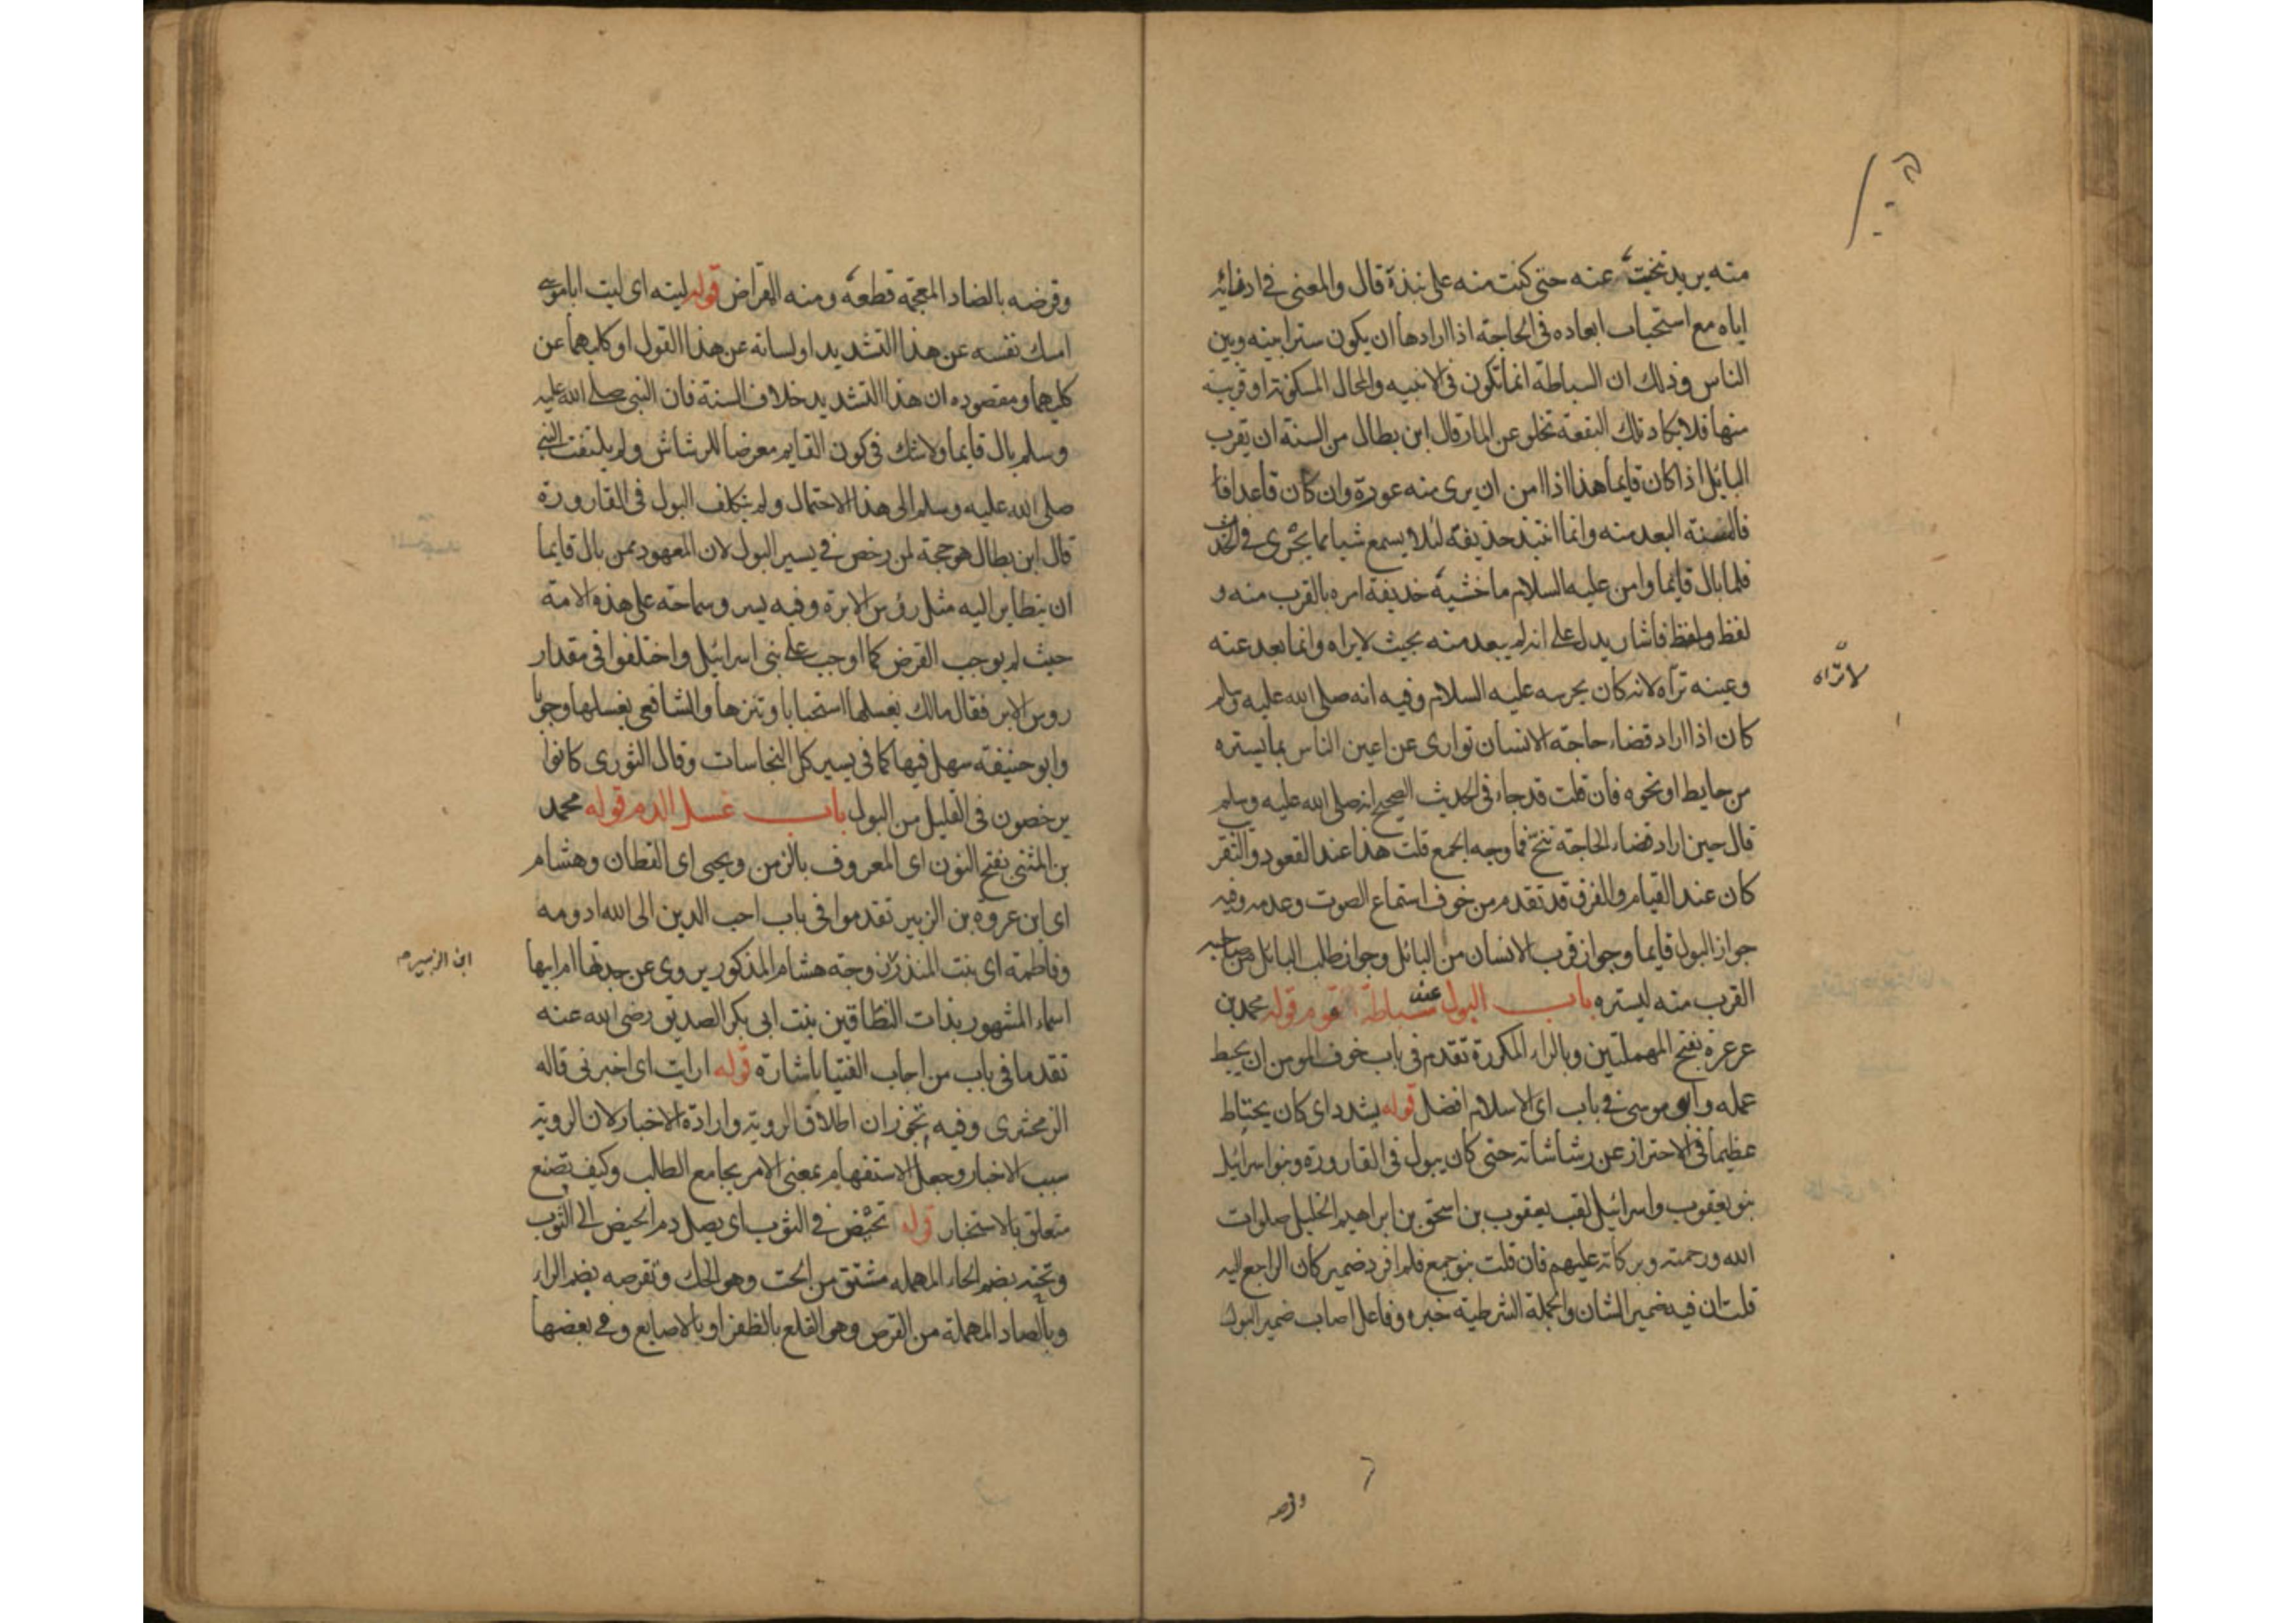 منه يريد تنحيت عنه حتى كنت منه على نبذة قال والمعنى في ادنائه
اياه مع استحباب ابعاده في الحاجة اذا ارادها ان يكون سترا بينه وبين
الناس وذلك ان السباطة انما تكون في الافنيه والمحال المسكونة او قريبة
منها فلا يكاد تلك البقعة تخلو عن المار قال ابن بطال من السنة ان يقرب
البائل اذا كان قايما هذا اذا امن ان يرى منه عورة وان كان قاعدا فا
فالسنة البعد منه وانما انتبذ حذيفة لئلا يسمع شيا مما يجرى في الحدث
فلما بال قايما وامن عليه السلام ما خشيه حذيفة امره بالقرب منه و
لفظ فاشار يدل على انه لم يبعد منه بحيث لا يراه وانما بعد عنه
وعينه تراه لانه كان يحرسه عليه السلام وفيه انه صلى الله عليه وسلم
لا تراه
كان اذا اراد قضاء حاجة الانسان توارى عن اعين الناس بما يستره
من حايط او نحوه فان قلت قد جاء في الحديث الصحيح انه صلى الله عليه وسلم
قال حين اراد قضاء الحاجة تنح فما وجه الجمع قلت هذا عند القعود والتقر
كان عند القيام والفرق قد تقدم من خوف استماع الصوت وعدمه وفيه
جواز البول قايما وجواز قرب الانسان من البائل وجواز طلب البائل من صاحبه
القرب منه ليستره باب البول عند سباطة قوم قوله محمد بن
عرعرة بفتح المهملتين وبالراء المكررة تقدم في باب خوف المومن ان يحبط
عمله وابو موسى في باب اى الاسلام افضل قوله يشدد اى كان يحتاط
عظيما في الاحتراز عن رشاشاته حتى كان يبول في القارورة وبنو اسرائيل
بنو يعقوب واسرائيل لقب يعقوب بن اسحق بن ابراهيم الخليل صلوات
الله ورحمته وبركاته عليهم فان قلت بنو جمع فلم افرد ضمير كان الراجع اليه
قلت ان فيه ضمير الشان والجملة الشرطية خبره وفاعل اصاب ضمير البول
وقرضه
وقرضه بالضاد المعجمة قطعه ومنه المقراض قوله ليته اى ليت ابا موسى
امسك نفسه عن هذا التشديد او لسانه عن هذا القول او كليهما عن
كليهما ومقصوده ان هذا التشديد خلاف السنة فان النبى صلى الله عليه
وسلم بال قايما ولا شك في كون القايم معرضا للرشاش ولم يلتفت النبى
صلى الله عليه وسلم الى هذا الاحتمال ولم يتكلف البول في القارورة
قال ابن بطال هو حجة لمن رخص في يسير البول لان المعهود ممن بال قايما
ان يتطاير اليه مثل رؤس الابرة وفيه يسر وسماحة على هذه الامة
حيث لم يوجب القرض كما اوجب على بنى اسرائيل واختلفوا في مقدار
روس الابر فقال مالك يغسلها استحبابا وتنزها والشافعى يغسلها وجوبا
وابو حنيفة سهل فيها كما في يسير كل النجاسات وقال الثورى كانوا
يرخصون في القليل من البول باب غسل الدم قوله محمد
بن المثنى بفتح النون اى المعروف بالزمن ويحيى اى القطان وهشام
اى ابن عروة بن الزبير تقدموا في باب احب الدين الى الله ادومه
وفاطمة اى بنت المنذر زوجة هشام المذكور يروى عن جدتها ام ابيها
ابن الزبير صح
اسماء المشهور بذات النطاقين بنت ابى بكر الصديق رضى الله عنه
تقدما في باب من اجاب الفتيا باشارة قوله ارايت اى اخبرنى قاله
الزمخشرى وفيه تجوزان اطلاق الروية وارادة الاخبار لان الروية
سبب الاخبار وجعل الاستفهام بمعنى الامر بجامع الطلب وكيف تصنع
متعلق بالاستخبار قوله تحيض في الثوب اى يصل دم الحيض الى الثوب
وتحته بضم الحاء المهمله مشتق من الحت وهو الحك وتقرصه بضم الراء
وبالصاد المهملة من القرص وهو القلع بالظفر او بالاصابع وفي بعضها